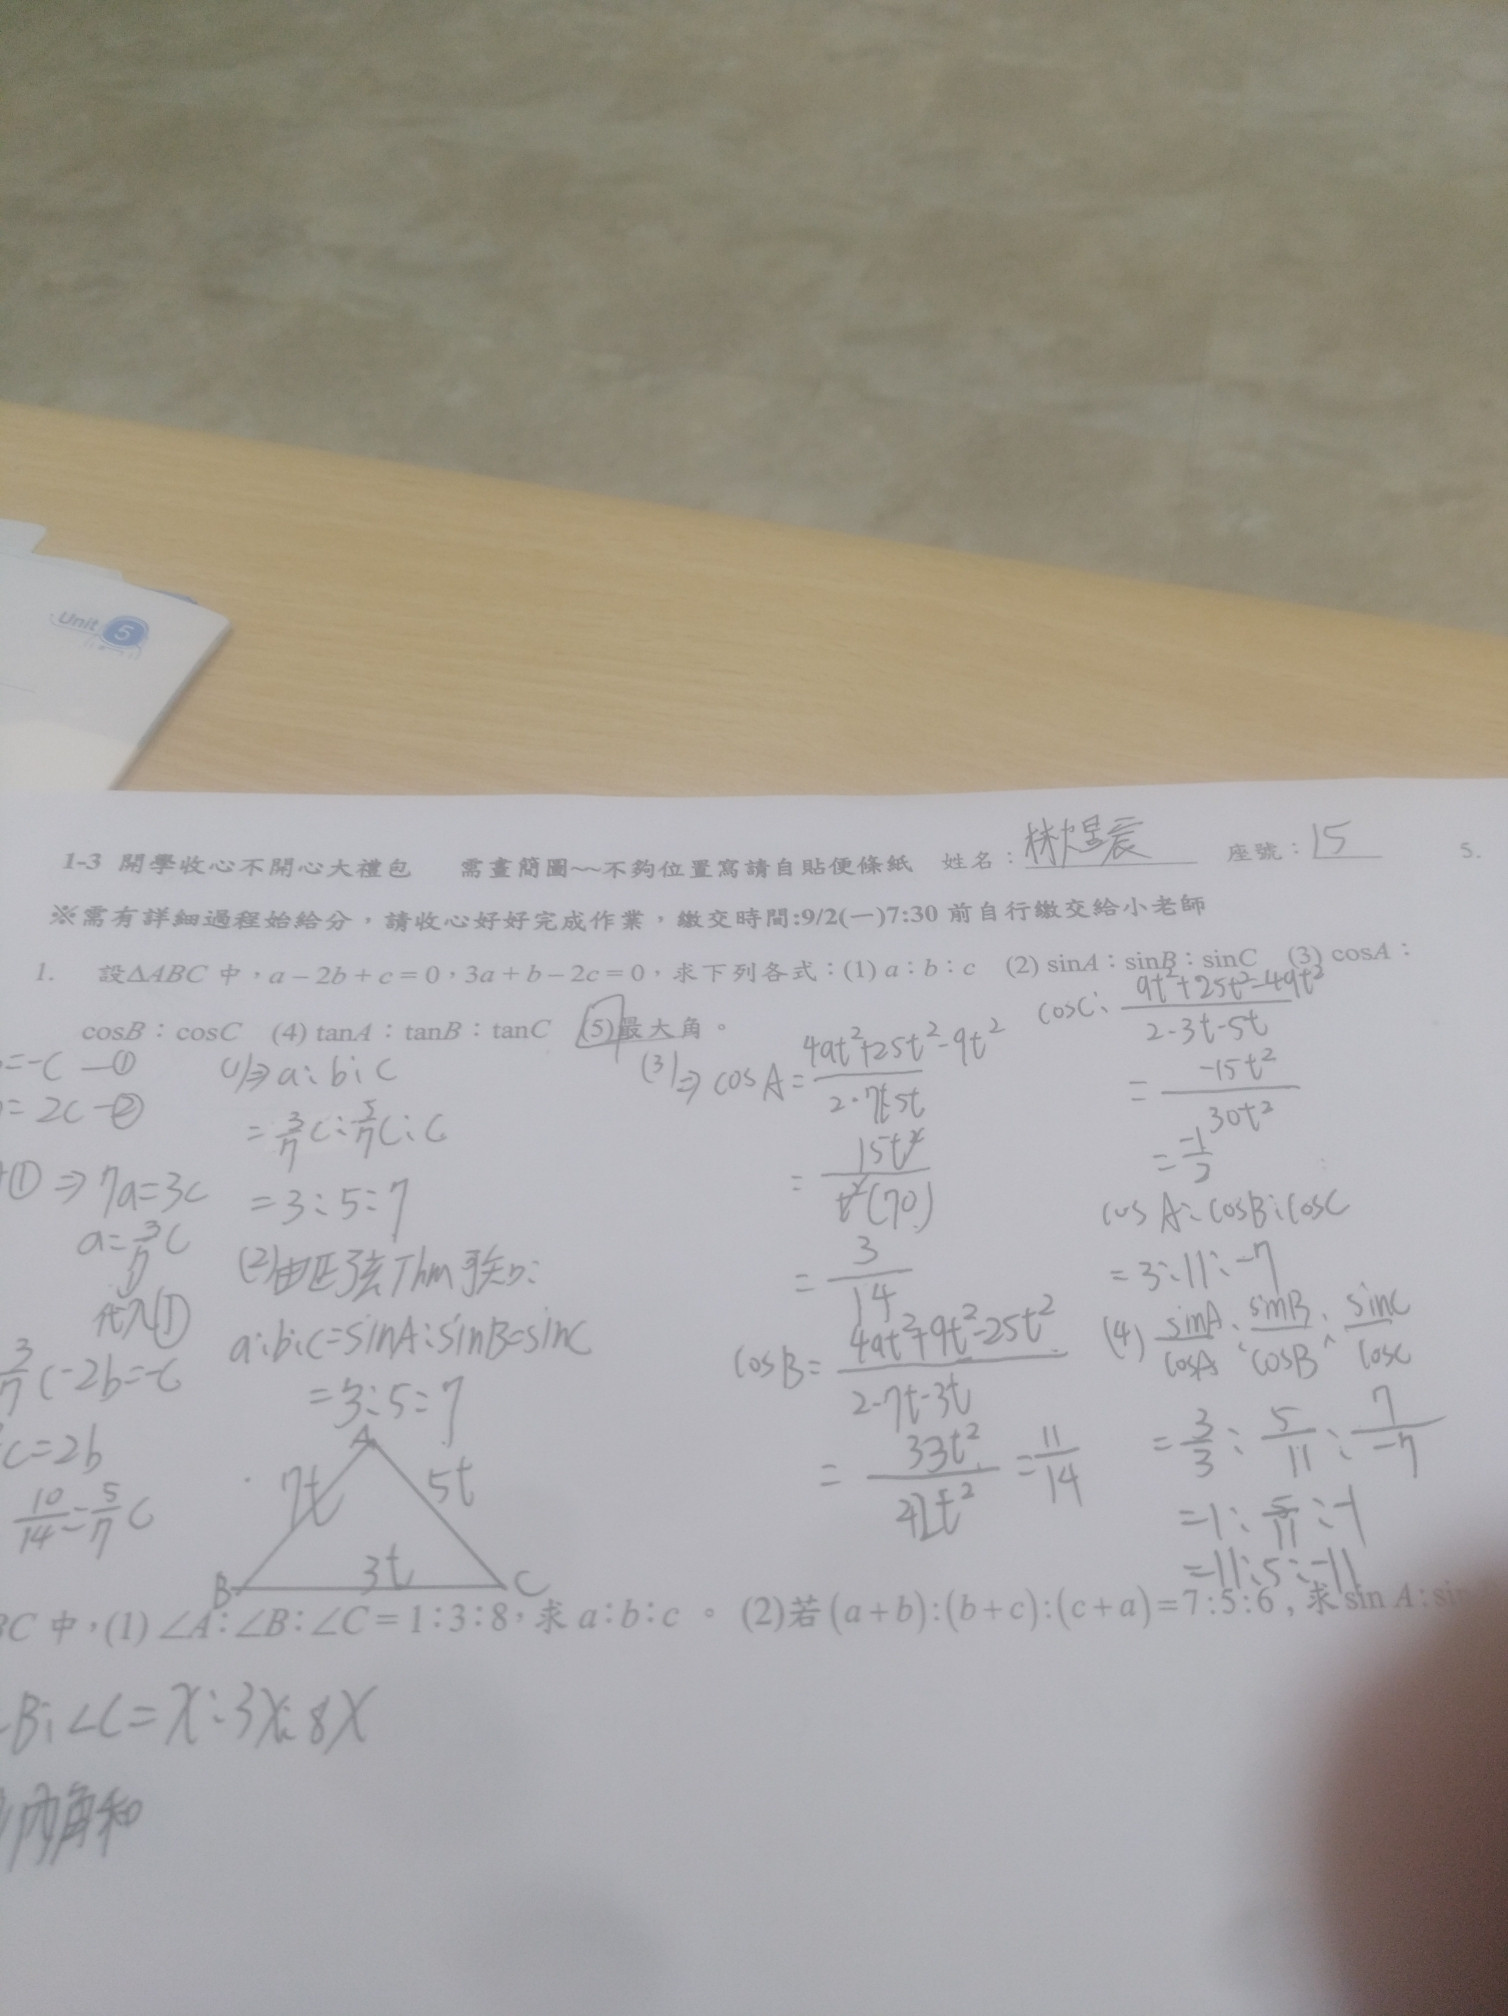 Unit 5
1-3 開學收心不開心大禮包 需畫簡圖~~不夠位置寫請自貼便條紙 姓名：林煜宸 座號：15
5.
※需有詳細過程始給分，請收心好好完成作業，繳交時間:9/2(一)7:30 前自行繳交給小老師
1. 設ΔABC 中，a－2b＋c＝0，3a＋b－2c＝0，求下列各式：(1) a：b：c (2) sinA：sinB：sinC (3) cosA：
cosB：cosC (4) tanA：tanB：tanC (5)最大角。
=-C —①
= 2C —②
① ⇒ 7a=3c
a=3/7 c
代入①
3/7 c-2b=-c
c=2b
10/14=5/7 c
(1)⇒ a:b:c
=3/7 c:5/7 c:c
=3:5:7
(2)由正弦Thm 可知:
a:b:c=sinA:sinB=sinC
=3:5:7
A
7t 5t
B 3t C
(3)⇒ cosA= 49t²+25t²-9t² / 2·7t·5t
= 15t² / t²(70)
= 3/14
cosB= 49t²+9t²-25t² / 2-7t-3t
= 33t² / 42t² = 11/14
cosC: 9t²+25t²-49t² / 2-3t-5t
= -15t² / 30t²
= -1/2
cosA:cosB:cosC
=3:11:-7
(4) sinA/cosA : sinB/cosB : sinC/cosC
= 3/3 : 5/11 : 7/-7
=1: 5/11 :-1
=11:5:-11
BC 中，(1) ∠A：∠B：∠C＝1：3：8，求 a：b：c 。 (2)若 (a+b):(b+c):(c+a)=7:5:6 , 求 sin A: sin
B:∠C=x:3x:8x
內角和